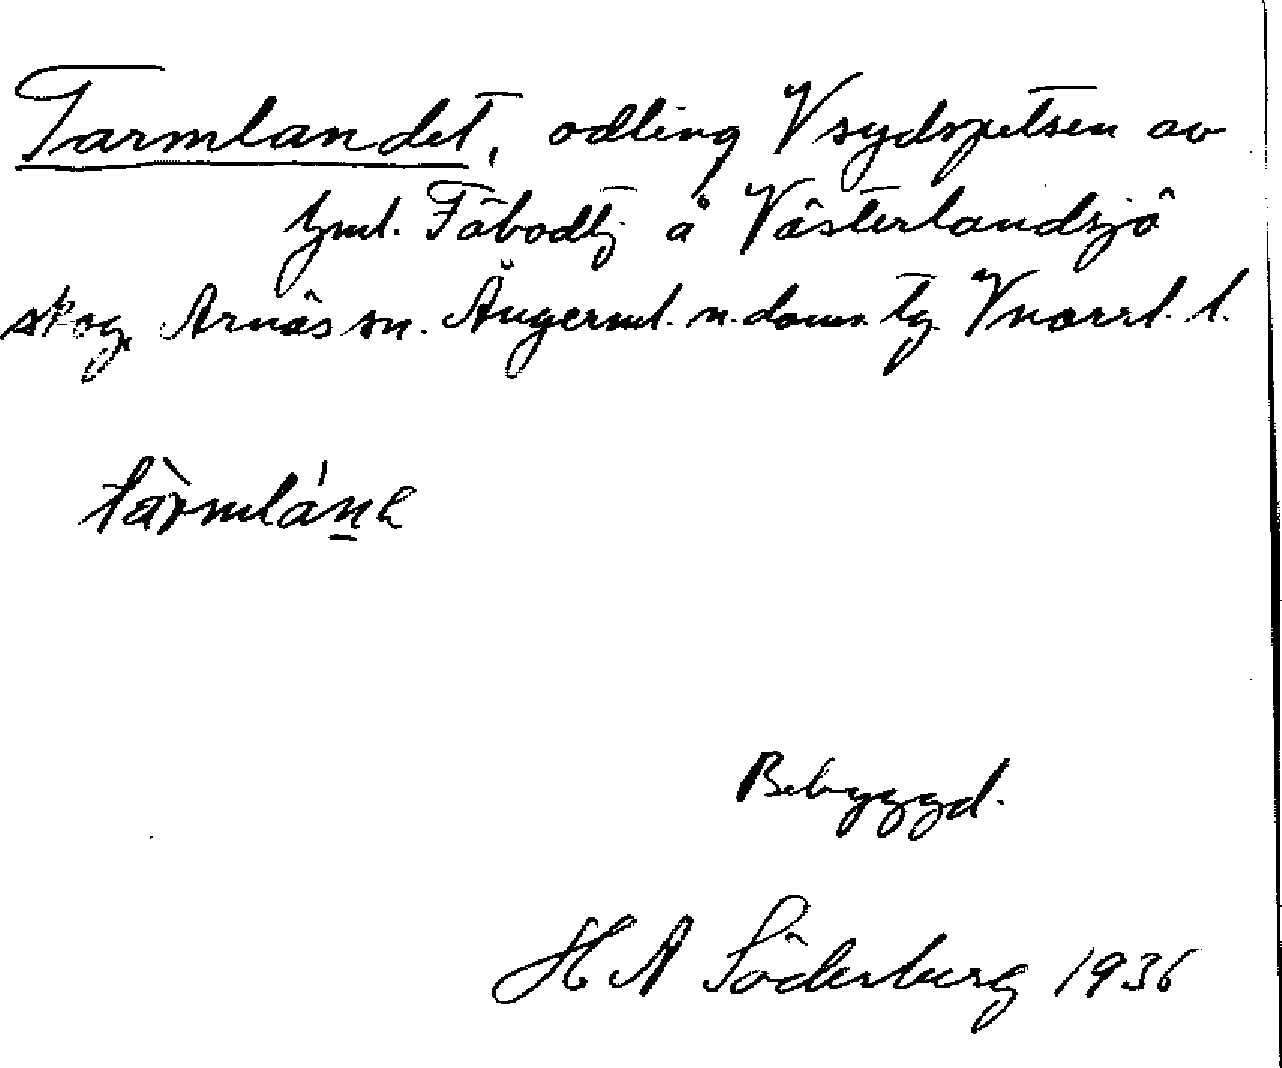 Tarmlandet, odling V sydspetsen av
Fäbodtj. å Västerlandsjö
skog, Arnäs sn. Ångerml. n. doms. tg. Vnorrl. l.
Bebyggd.
H A Söderberg 1936